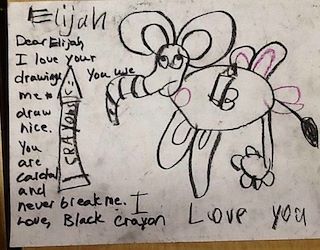 Elijah
Dear Elijah
I love your
drawings You use
me to
draw
nice.
You
are
careful
and
never break me. I
Love, Black crayon Love you
CRAYON
B